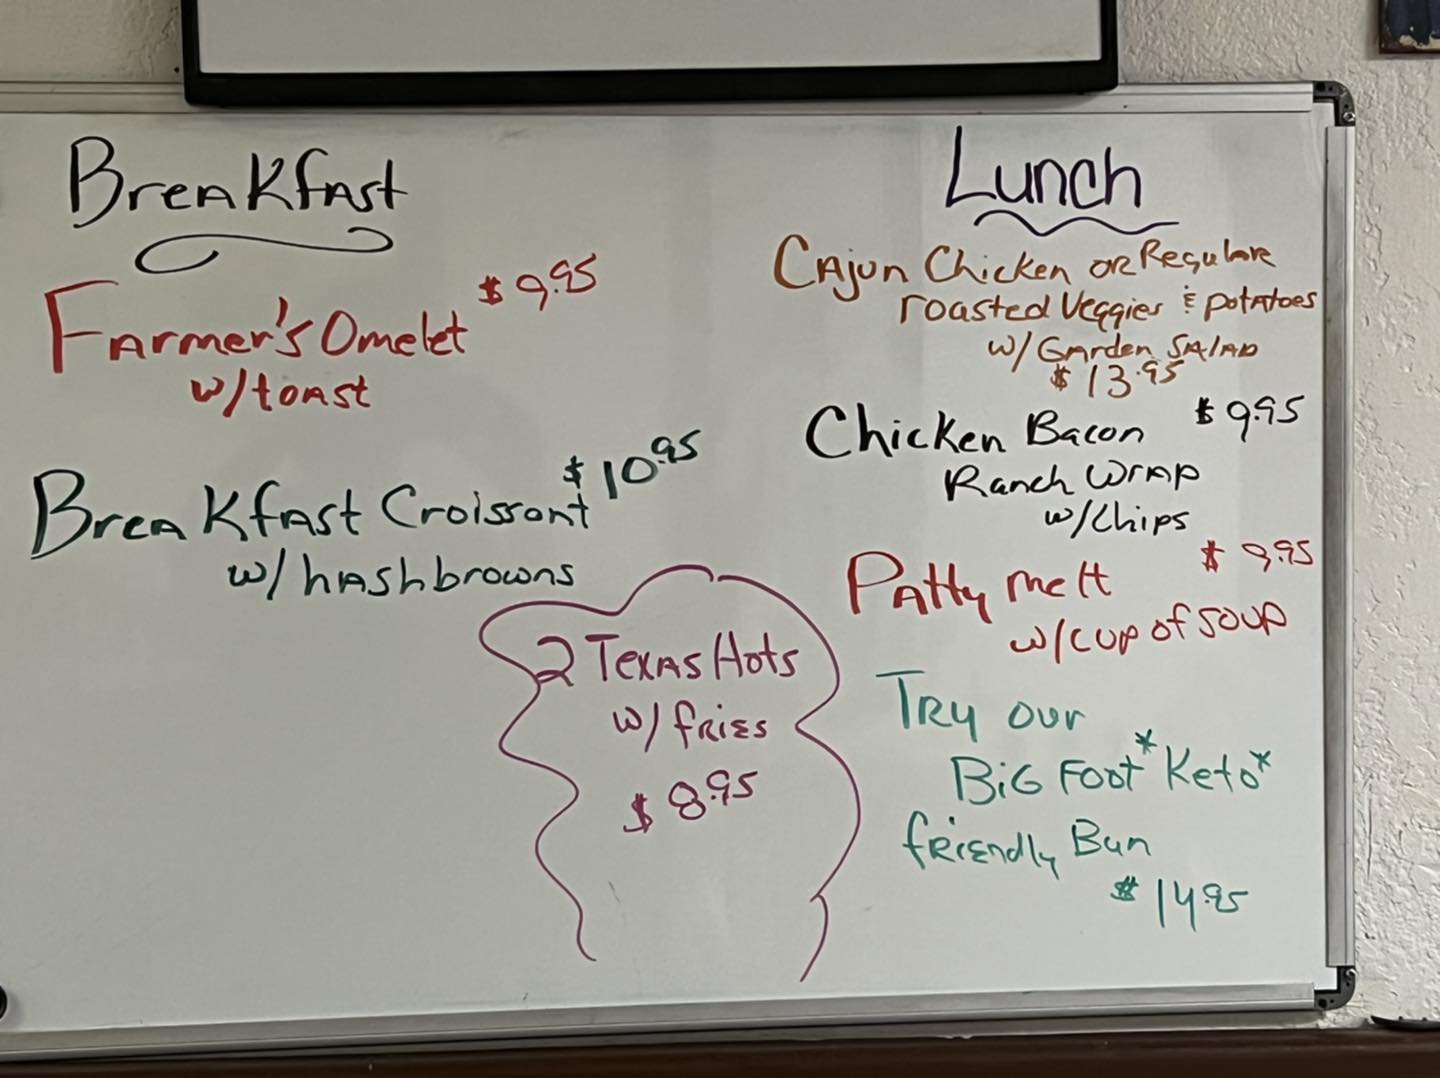 Breakfast
$ 9.95
Farmer's Omelet
w/toast
$ 10.95
Breakfast Croissant
w/hashbrowns
2 Texas Hots
w/fries
$ 8.95
Lunch
Cajun Chicken or Regular
roasted Veggies & potatoes
w/ Garden Salad
$ 13.95
Chicken Bacon $ 9.95
Ranch Wrap
w/chips
Patty melt $ 9.95
w/cup of soup
Try our
Big Foot* Keto*
friendly Bun
$ 14.95